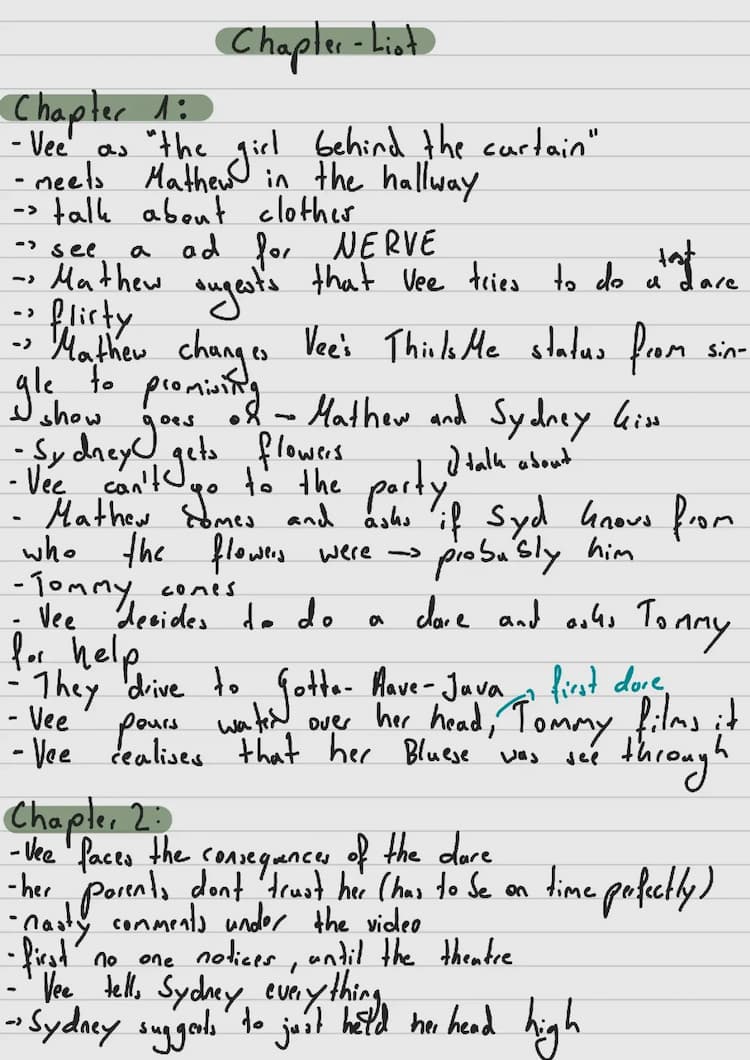 Chapter-List
Chapter 1:
- Vee as "the girl behind the curtain"
- meets Mathew in the hallway
-> talk about clothes
-> see a ad for NERVE
-> Mathew sugests that Vee tries to do a test dare
-> flirty
-> Mathew changes Vee's ThisIsMe status from sin-
gle to promising
show goes on - Mathew and Sydney kiss
- Sydney gets flowers
- Vee can't go to the party talk about
- Mathew comes and asks if Syd knows from
who the flowers were -> probably him
- Tommy comes
- Vee decides to do a dare and asks Tommy
for help
- They drive to Gotta-Have-Java -> first dare
- Vee pours water over her head, Tommy films it
- Vee realises that her Bluese was see through
Chapter 2:
- Vee faces the consequences of the dare
- her parents dont trust her (has to be on time perfectly)
- nasty comments under the video
- first no one notices, until the theatre
- Vee tells Sydney everything
-> Sydney suggests to just held her head high